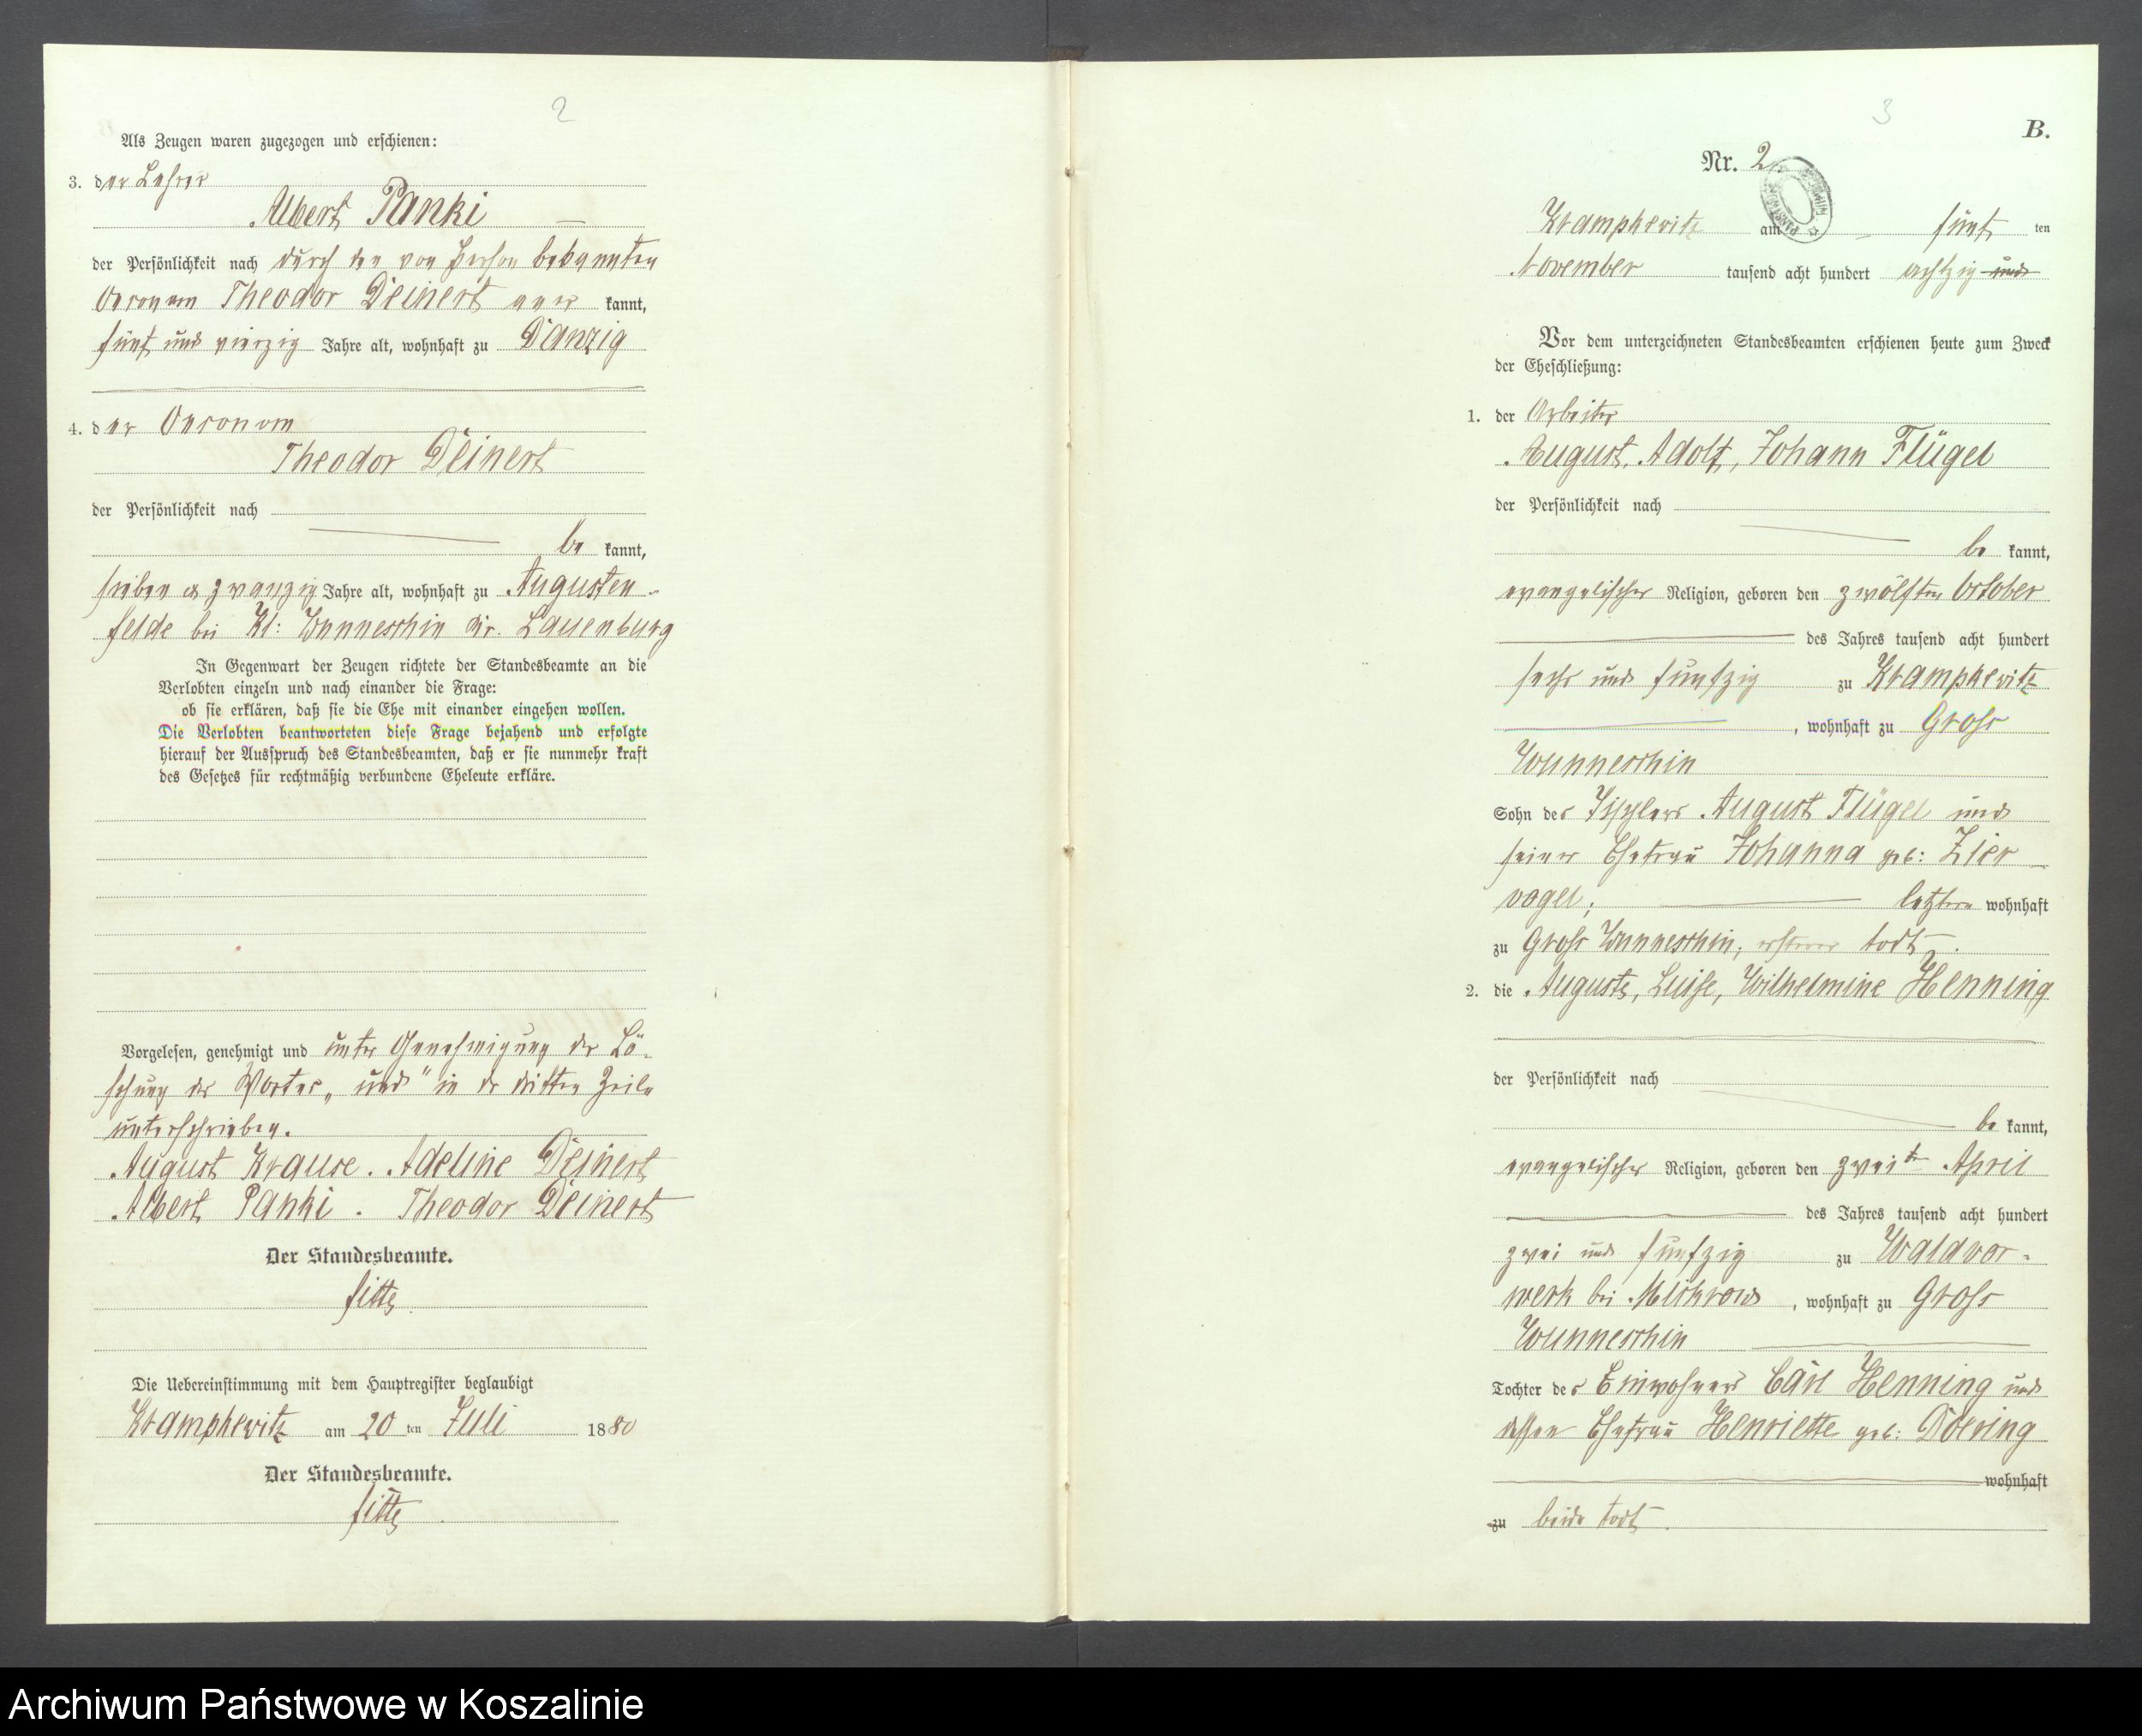 2
Als Zeugen waren zugezogen und erschienen:
3. der Lehrer
Albert Panki
der Persönlichkeit nach durch den von Person bekannten
Oeconom Theodor Deinert aner kannt,
fünf und vierzig Jahre alt, wohnhaft zu Danzig
4. der Oeconom
Theodor Deinert
der Persönlichkeit nach
be kannt,
sieben & zwanzig Jahre alt, wohnhaft zu Augusten-
felde bei Kl: Wunneschin Kr. Lauenburg
In Gegenwart der Zeugen richtete der Standesbeamte an die
Verlobten einzeln und nach einander die Frage:
ob sie erklären, daß sie die Ehe mit einander eingehen wollen.
Die Verlobten beantworteten diese Frage bejahend und erfolgte
hierauf der Ausspruch des Standesbeamten, daß er sie nunmehr kraft
des Gesetzes für rechtmäßig verbundene Eheleute erkläre.
Vorgelesen, genehmigt und unter Genehmigung der Lö-
schung des Wortes „und" in der dritten Zeile
unterschrieben.
August Krause. Adeline Deinert
Albert Panki. Theodor Deinert
Der Standesbeamte.
Die Uebereinstimmung mit dem Hauptregister beglaubigt
Krampkewitz am 20 ten Juli 1880
Der Standesbeamte.
3
B.
Nr. 2
Krampkewitz am fünf ten
November tausend acht hundert achtzig und
Vor dem unterzeichneten Standesbeamten erschienen heute zum Zweck
der Eheschließung:
1. der Arbeiter
August, Adolf, Johann Flügel
der Persönlichkeit nach
be kannt,
evangelischer Religion, geboren den zwölften October
des Jahres tausend acht hundert
sechs und funfzig zu Krampkewitz
, wohnhaft zu Groß
Wunneschin
Sohn des Tischlers August Flügel und
seiner Ehefrau Johanna geb: Zier
vogel; letztere wohnhaft
zu Groß Wunneschin, ersterer todt.
2. die Auguste, Luise, Wilhelmine Henning
der Persönlichkeit nach
be kannt,
evangelischer Religion, geboren den zweiten April
des Jahres tausend acht hundert
zwei und funfzig zu Waldvor-
werk bei Mickrow, wohnhaft zu Groß
Wunneschin
Tochter des Einwohners Carl Henning und
dessen Ehefrau Henriette geb: Doering
wohnhaft
zu beide todt.
Archiwum Państwowe w Koszalinie